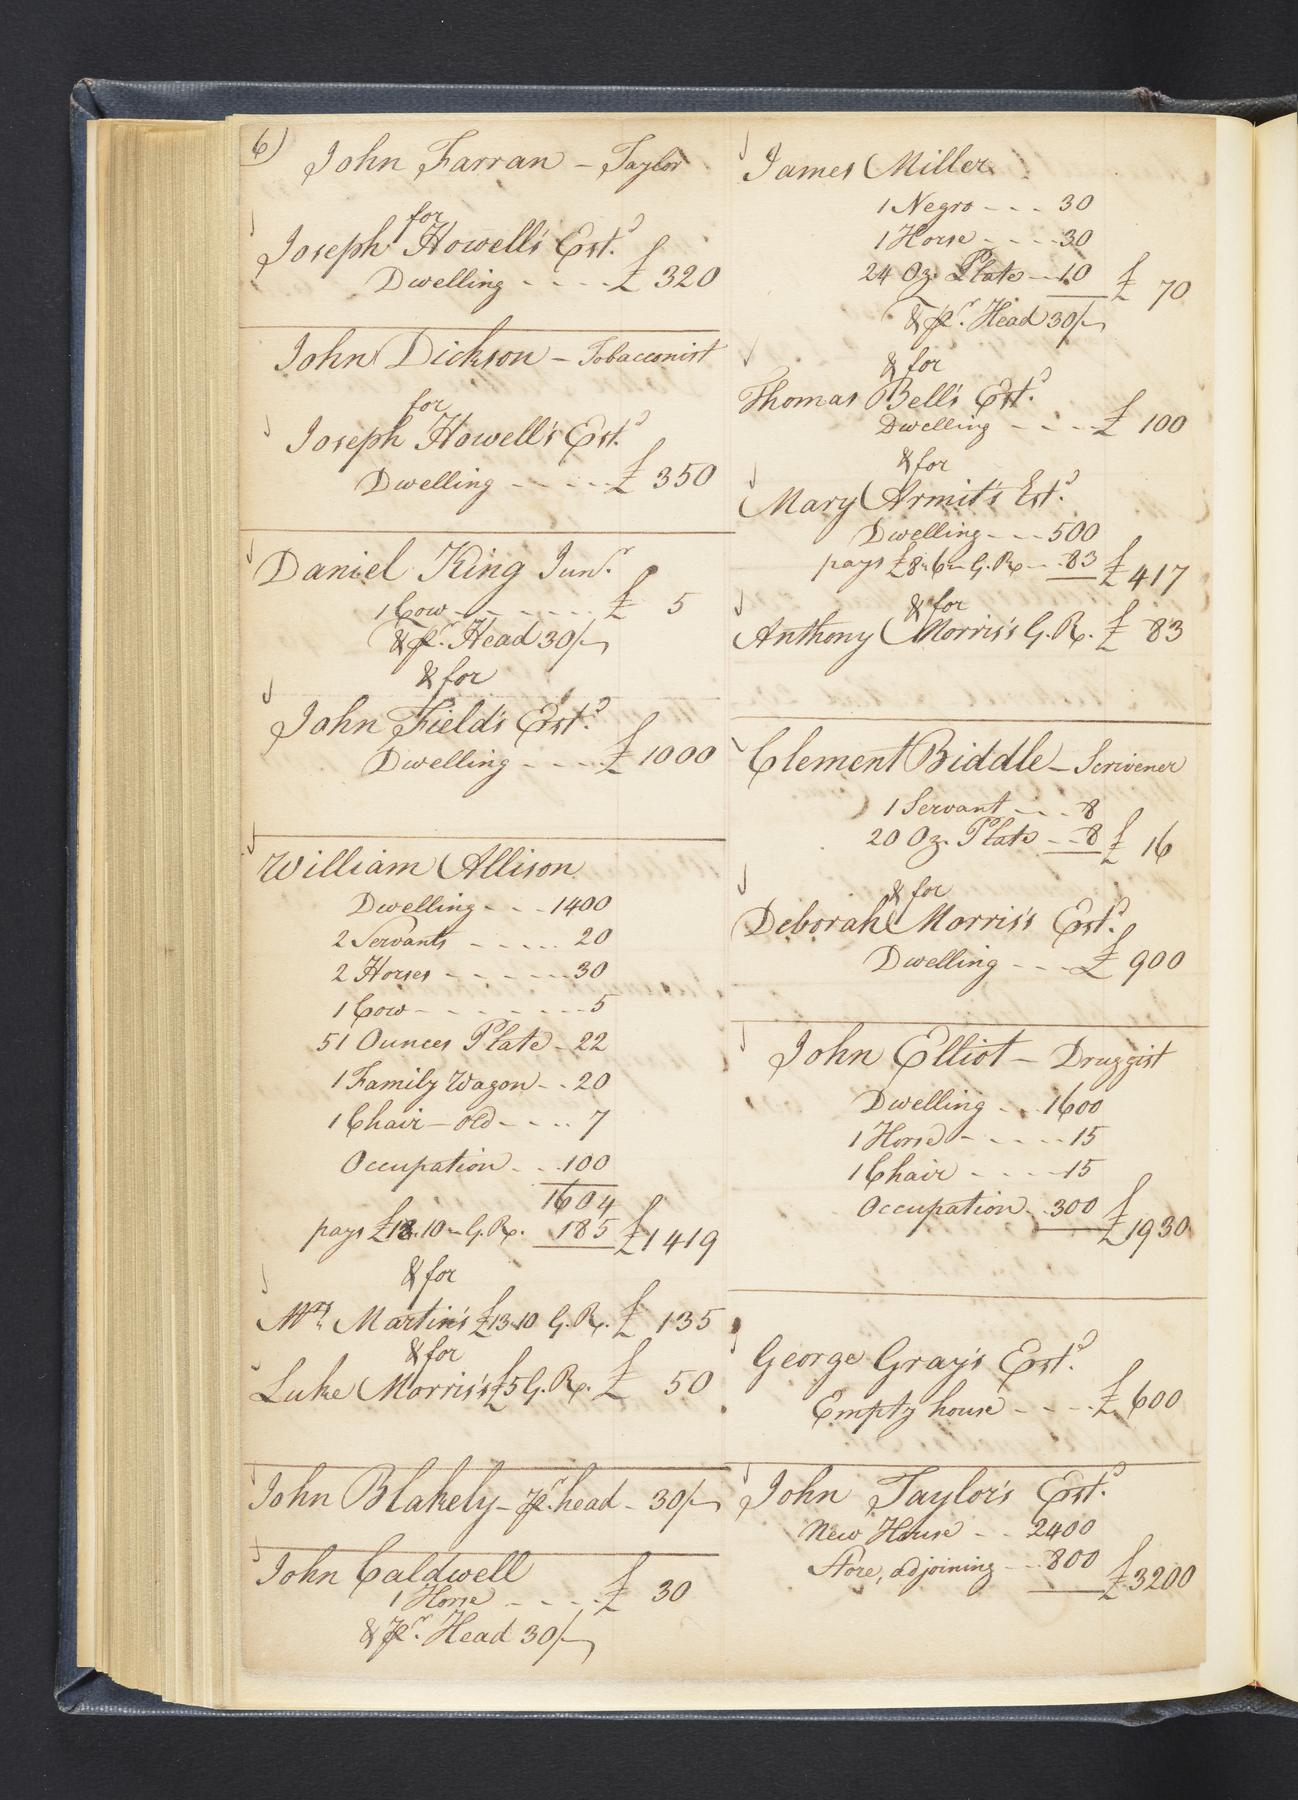 6)
John Farran – Taylor
for
Joseph Howell's Estd
Dwelling - - - - £ 320
John Dickson – Tobacconist
for
Joseph Howell's Estd
Dwelling - - - - - £ 350
Daniel King Junr.
1 Cow - - - - - - £ 5
& pr. Head 30/–
& for
John Field's Estd
Dwelling - - - - £ 1000
William Allison
Dwelling - - - 1400
2 Servants - - - - - 20
2 Horses - - - - - - 30
1 Cow - - - - - - - - 5
51 Ounces Plate - 22
1 Family Wagon - - 20
1 Chair – old - - - - 7
Occupation - - - 100
1604
pays £18.10 – G. R. 185 £1419
& for
Martin's £13.10 G. R. £ 135
& for
Luke Morris's £5 G. R. £ 50
John Blakely – pr. head – 30/–
John Caldwell
1 Horse - - - - £ 30
& pr. Head 30/–
James Miller
1 Negro - - - 30
1 Horse - - - - 30
24 Oz. Plate - - 10 £ 70
& pr. Head 30/–
& for
Thomas Bell's Estd
Dwelling - - - - £ 100
& for
Mary Armit's Estd
Dwelling - - - 500
pays £8.6 – G. R. - - 83 £417
& for
Anthony Morris's G. R. £ 83
Clement Biddle – Scrivener
1 Servant - - - 8
20 Oz. Plate - - 8 £ 16
& for
Deborah Morris's Estd
Dwelling - - - £ 900
John Elliot – Druggist
Dwelling - - 1600
1 Horse - - - - - 15
1 Chair - - - - - 15
Occupation - - 300 £1930
George Gray's Estd
Empty house - - - - £ 600
John Taylor's Estd
New House - - 2400
Store, adjoining - - 800 £3200